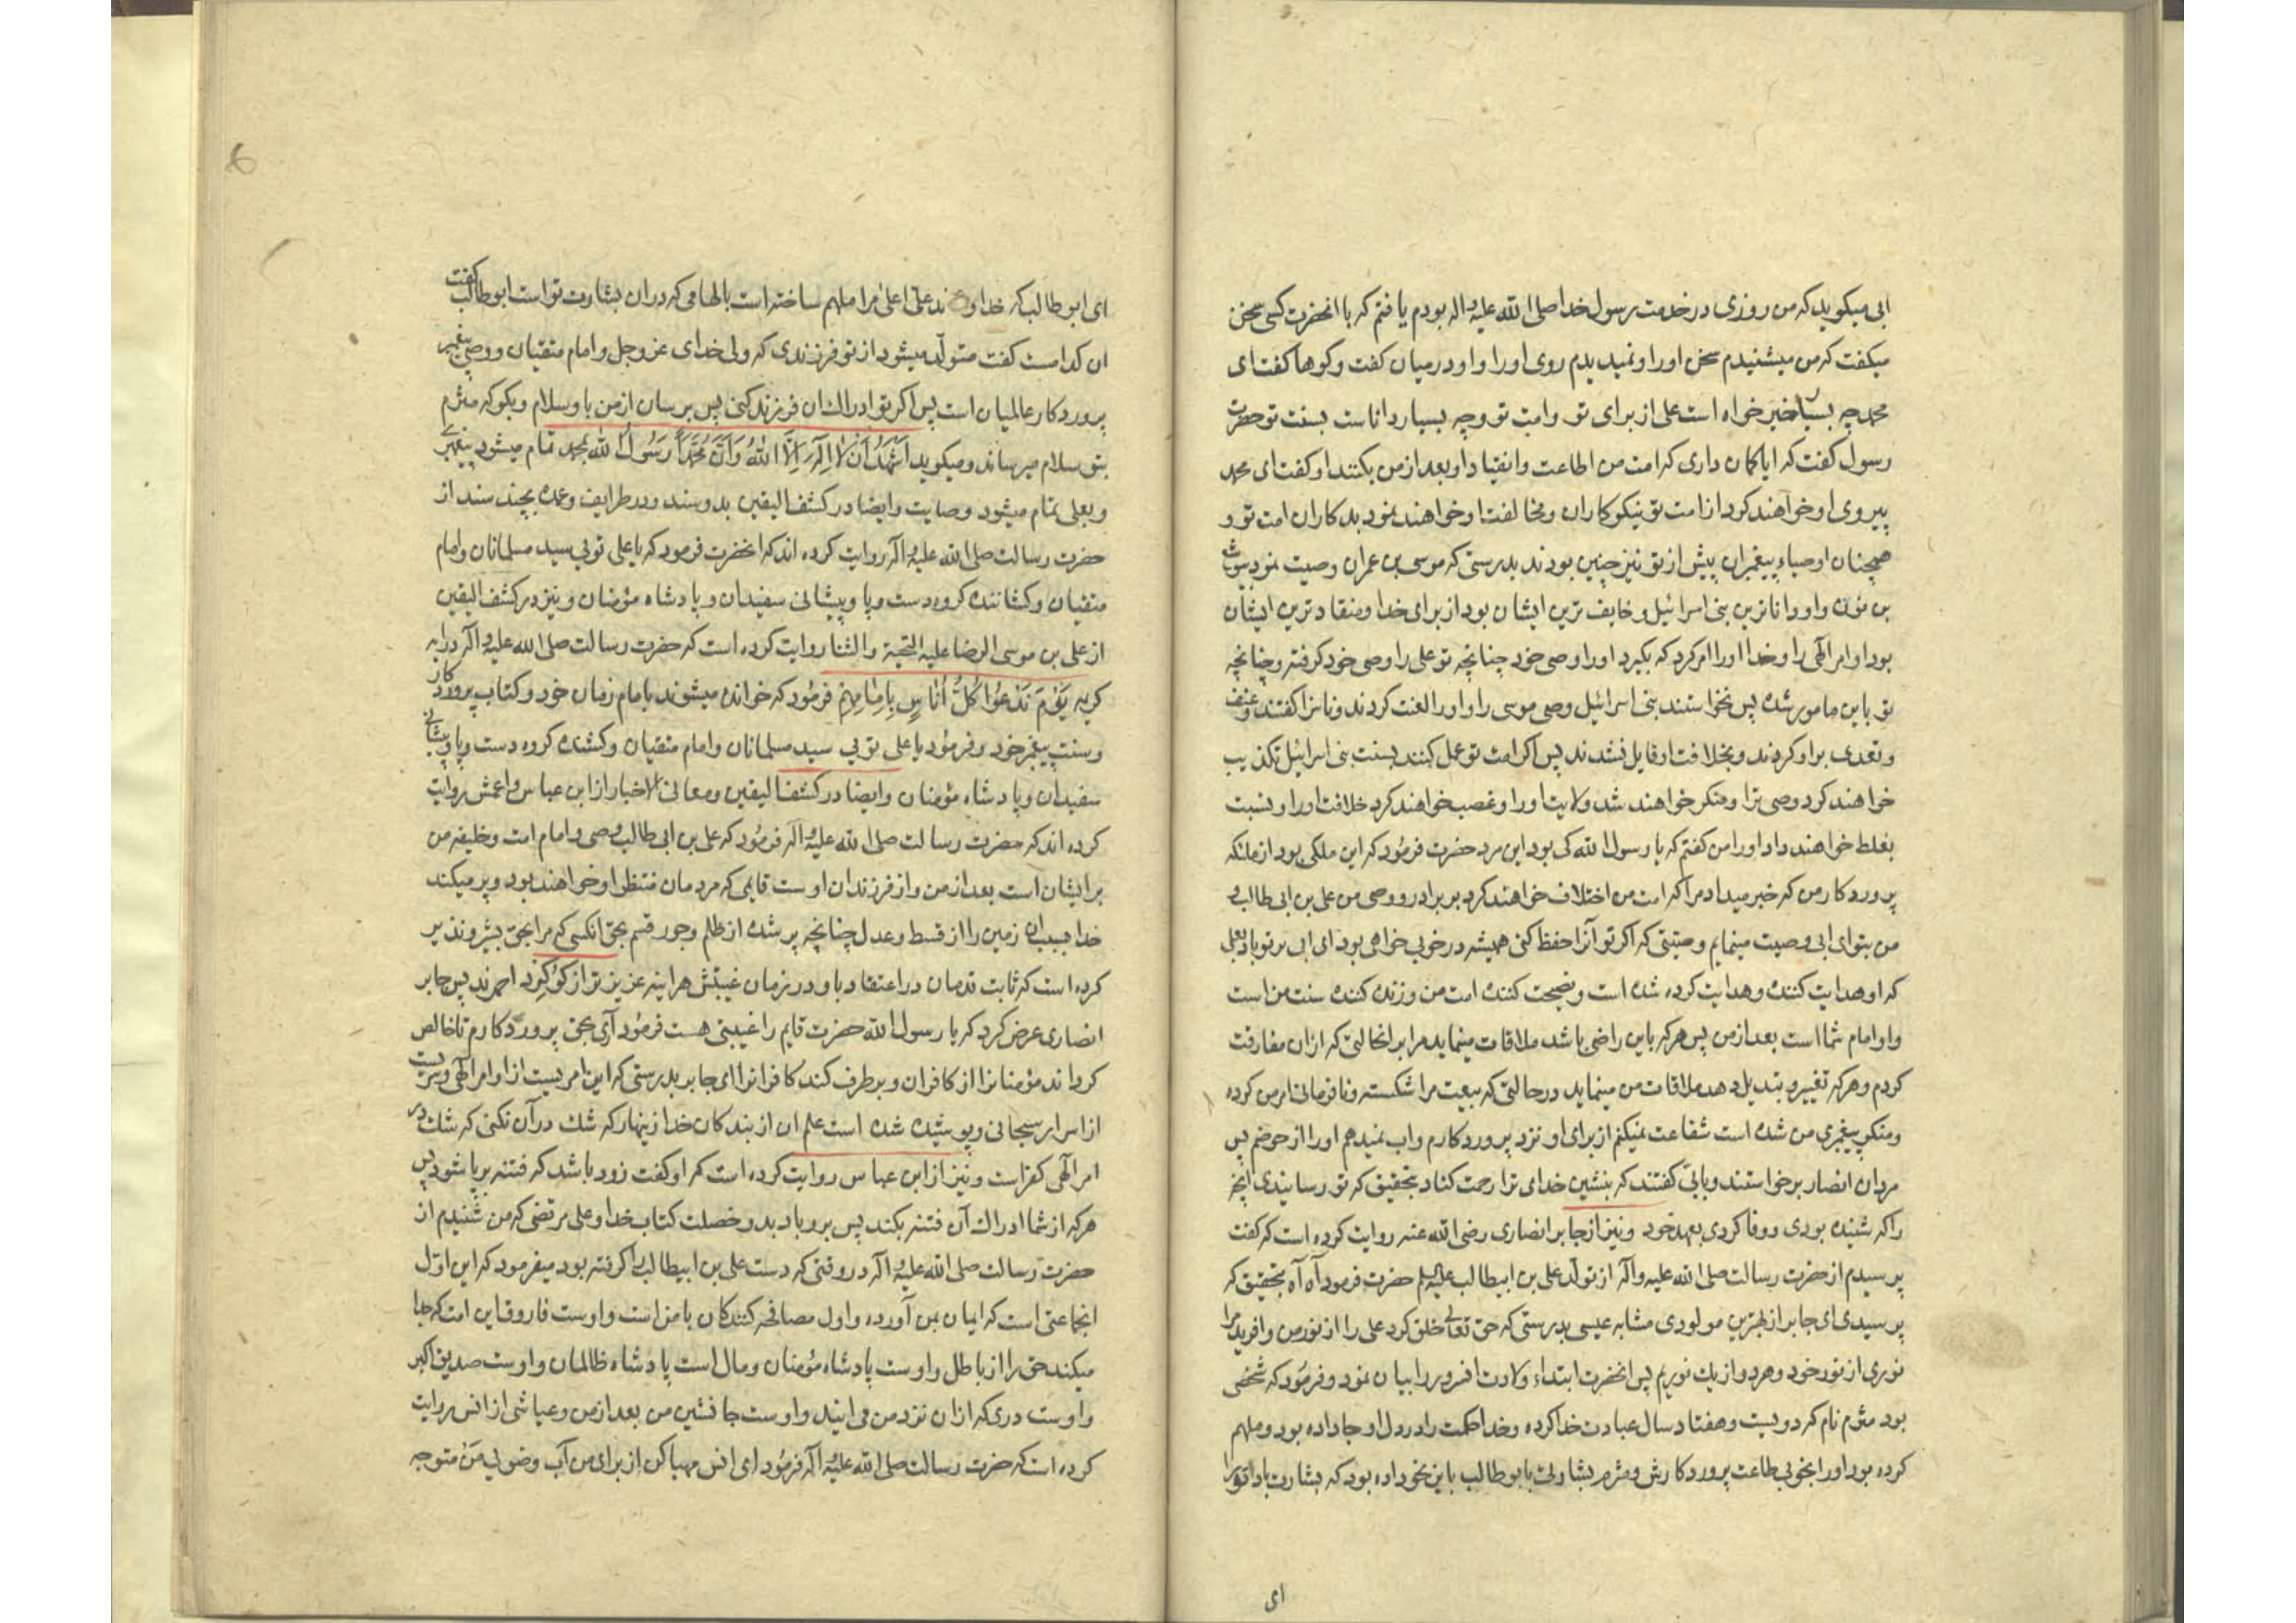 ابی میکوید که من روزی در خدمت رسول خدا صلی الله علیه و اله بودم یافتم که با انحضرت کسی سخن
میکفت که من میشنیدم سخن او را و نمیدیدم روی او را و او در میان کفت و کوها کفت ای
محمد چه بسیار خیر خواه است علی از برای تو و امت تو و چه بسیار داناست بسنت تو حضرت
رسول کفت که ایا کمان داری که امت من اطاعت و انقیاد او بعد از من بکنند او کفت ای محمد
پیروی او خواهند کرد از امت تو نیکوکاران و مخالفت او خواهند نمود بدکاران امت تو و
همچنان اوصیاء پیغمبران پیش از تو نیز چنین بودند بدرستی که موسی بن عمران وصیت نمود بیوشع
بن نون و او داناترین بنی اسرائیل و خایف ترین ایشان بود از برای خدا و منقاد ترین ایشان
بود اوامر الهی را و خدا او را امر کرد که بکیرد او را وصی خود چنانچه تو علی را وصی خود کرفته و چنانچه
تو باین مامور شده پس نخواستند بنی اسرائیل وصی موسی را و او را لعنت کردند و ناسزا کفتند و عنف
و تعدی بر او کردند و بخلافت او قایل نشدند پس اکر امت تو عمل کنند بسنت بنی اسرائیل تکذیب
خواهند کرد وصی ترا و منکر خواهند شد ولایت او را و غصب خواهند کرد خلافت او را و نسبت
بغلط خواهند داد او را من کفتم که یا رسول الله کی بود این مرد حضرت فرمود که این ملکی بود از ملئکه
پروردکار من که خبر میداد مرا که امت من اختلاف خواهند کرد بر برادر و وصی من علی بن ابی طالب و
من بتو ای ابی وصیت مینمایم وصیتی که اکر تو آنرا حفظ کنی همیشه در خوبی خواهی بود ای ابی بر تو باد بعلی
که او هدایت کننده و هدایت کرده شده است و نصیحت کننده امت من و زنده کننده سنت من است
و او امام شما است بعد از من پس هر که باین راضی باشد ملاقات مینماید مرا بر انحالتی که از ان مفارقت
کردم و هر که تغییر و تبدیل دهد ملاقات من مینماید در حالتی که بیعت مرا شکسته و نافرمانی امر من کرده
و منکر پیغمبری من شده است شفاعت نمیکنم از برای او نزد پروردکارم و اب نمیدهم او را از حوضم پس
مردان انصار برخواستند و بابی کفتند که بنشین خدای ترا رحمت کناد بتحقیق که تو رسانیدی انچه
را که شنیده بودی و وفا کردی بعهد خود و نیز از جابر انصاری رضی الله عنه روایت کرده است که کفت
پرسیدم از حضرت رسالت صلی الله علیه و آله از تولد علی بن ابیطالب علیه السلم حضرت فرمود آه آه بتحقیق که
پرسیدی ای جابر از بهترین مولودی مشابه عیسی بدرستی که حق تعالی خلق کرد علی را از نور من و افرید مرا
نوری از نور خود و هر دو از یک نوریم پس انحضرت ابتداء ولادت انسرور را بیان نمود و فرمود که شخصی
بود مثرم نام که دویست و هفتاد سال عبادت خدا کرده و خدا حکمت را در دل او جا داده بود و ملهم
کرده بود او را بخوبی طاعت پروردکارش و مثرم بشارت بابو طالب باین نحو داده بود که بشارت باد ترا
ای
ای ابو طالب که خداوند علی اعلی مرا ملهم ساخته است بالهامی که در ان بشارت تو است ابو طالب کفت
ان کدامست کفت متولد میشود از تو فرزندی که ولی خدای عز و جل و امام متقیان و وصی پیغمبر
پروردکار عالمیان است پس اکر تو ادراک ان فرزند کنی پس برسان از من باو سلام و بکو که مثرم
بتو سلام میرساند و میکوید اشهد ان لا اله الا الله و ان محمدا رسول الله بمحمد تمام میشود پیغمبری
و بعلی تمام میشود وصایت و ایضا در کشف الیقین بدو سند و در طرایف و عمده بچند سند از
حضرت رسالت صلی الله علیه و آله روایت کرده اند که انحضرت فرمود که یا علی تویی سید مسلمانان و امام
متقیان و کشاننده کروه دست و پا و پیشانی سفیدان و پادشاه مؤمنان و نیز در کشف الیقین
از علی بن موسی الرضا علیه التحیة و الثنا روایت کرده است که حضرت رسالت صلی الله علیه و آله در ایه
کریمه یَوْمَ نَدْعُوا کُلَّ اُنَاسٍ بِاِمَامِهِمْ فرمود که خوانده میشوند بامام زمان خود و کتاب پروردکار
و سنت پیغمبر خود و فرمود یا علی تویی سید مسلمانان و امام متقیان و کشنده کروه دست و پا و پیشانی
سفیدان و پادشاه مؤمنان و ایضا در کشف الیقین و معانی الاخبار از ابن عباس و اعمش روایت
کرده اند که حضرت رسالت صلی الله علیه و اله فرمود که علی بن ابی طالب وصی و امام امت و خلیفه من
بر ایشان است بعد از من و از فرزندان اوست قایمی که مردمان منتظر او خواهند بود و پر میکند
خدا بسبب ان زمین را از قسط و عدل چنانچه پر شده از ظلم و جور قسم بحق انکسی که مرا بحق بشیر و نذیر
کرده است که ثابت قدمان در اعتقاد باو در زمان غیبتش هراینه عزیز تر از کوکرد احمرند پس جابر
انصاری عرض کرد که یا رسول الله حضرت قایم را غیبتی هست فرمود آری بحق پروردکارم تا خالص
کرداند مؤمنانرا از کافران و بر طرف کند کافرانرا ای جابر بدرستی که این امریست از اوامر الهی و سریست
از اسرار سبحانی و پوشیده شده است علم ان از بندکان خدا زینهار که شک در آن نکنی که شک در
امر الهی کفر است و نیز از ابن عباس روایت کرده است که او کفت زود باشد که فتنه بر پا شود پس
هر که از شما ادراک آن فتنه بکند پس برو باد بدو خصلت کتاب خدا و علی مرتضی که من شنیدم از
حضرت رسالت صلی الله علیه و آله در وقتی که دست علی بن ابیطالب را کرفته بود میفرمود که این اول
انجماعتی است که ایمان بمن آورده و اول مصافحه کنندکان با من است و اوست فاروق این امت که جدا
میکند حق را از باطل و اوست پادشاه مؤمنان و مال است پادشاه ظالمان و اوست صدیق اکبر
و اوست دری که از ان نزد من می ایند و اوست جانشین من بعد از من و عیاشی از انس روایت
کرده است که حضرت رسالت صلی الله علیه و آله فرمود ای انس مهیا کن از برای من آب وضویی من متوجه